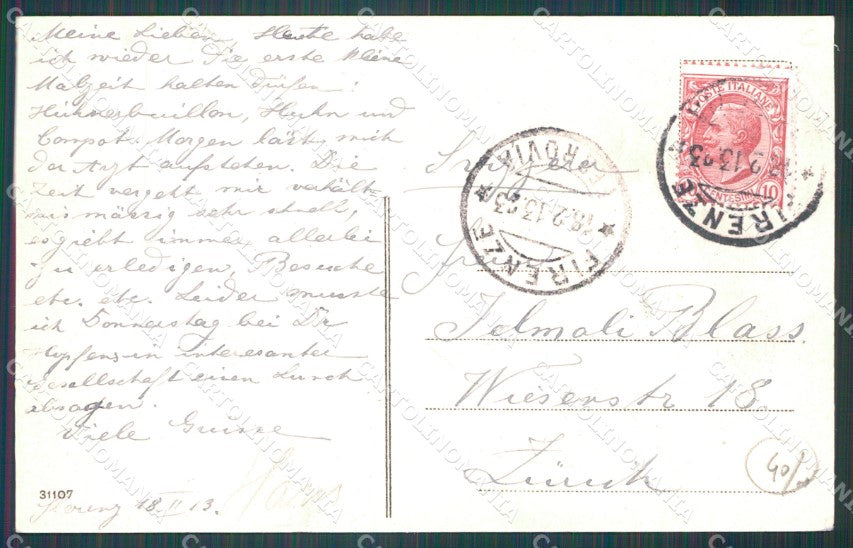 Meine Lieben, Heute habe
ich wieder die erste kleine
Malzeit halten dürfen:
Hühnerbuillon, Huhn und
Compot. Morgen läst mich
der Arzt aufstehen. Die
Zeit vergeht mir verhält-
nis mässig sehr schnell,
es giebt immer allerlei
zu erledigen, Besuche
etc. etc. Leider musste
ich Donnerstag bei Dr
in interesanter
Gesellschaft einen Lunch
absagen.
Viele Grüsse
Hans
31107
Florenz 18. II 13.
Svizzera
POSTE ITALIANE
CENTESIMI 10
FIRENZE
FERROVIA
18.2.13.23
FIRENZE
18.2.13.23
Jelmoli Blass
Wiesenstr 18
Zürich
40
CARTOLINOMANIA